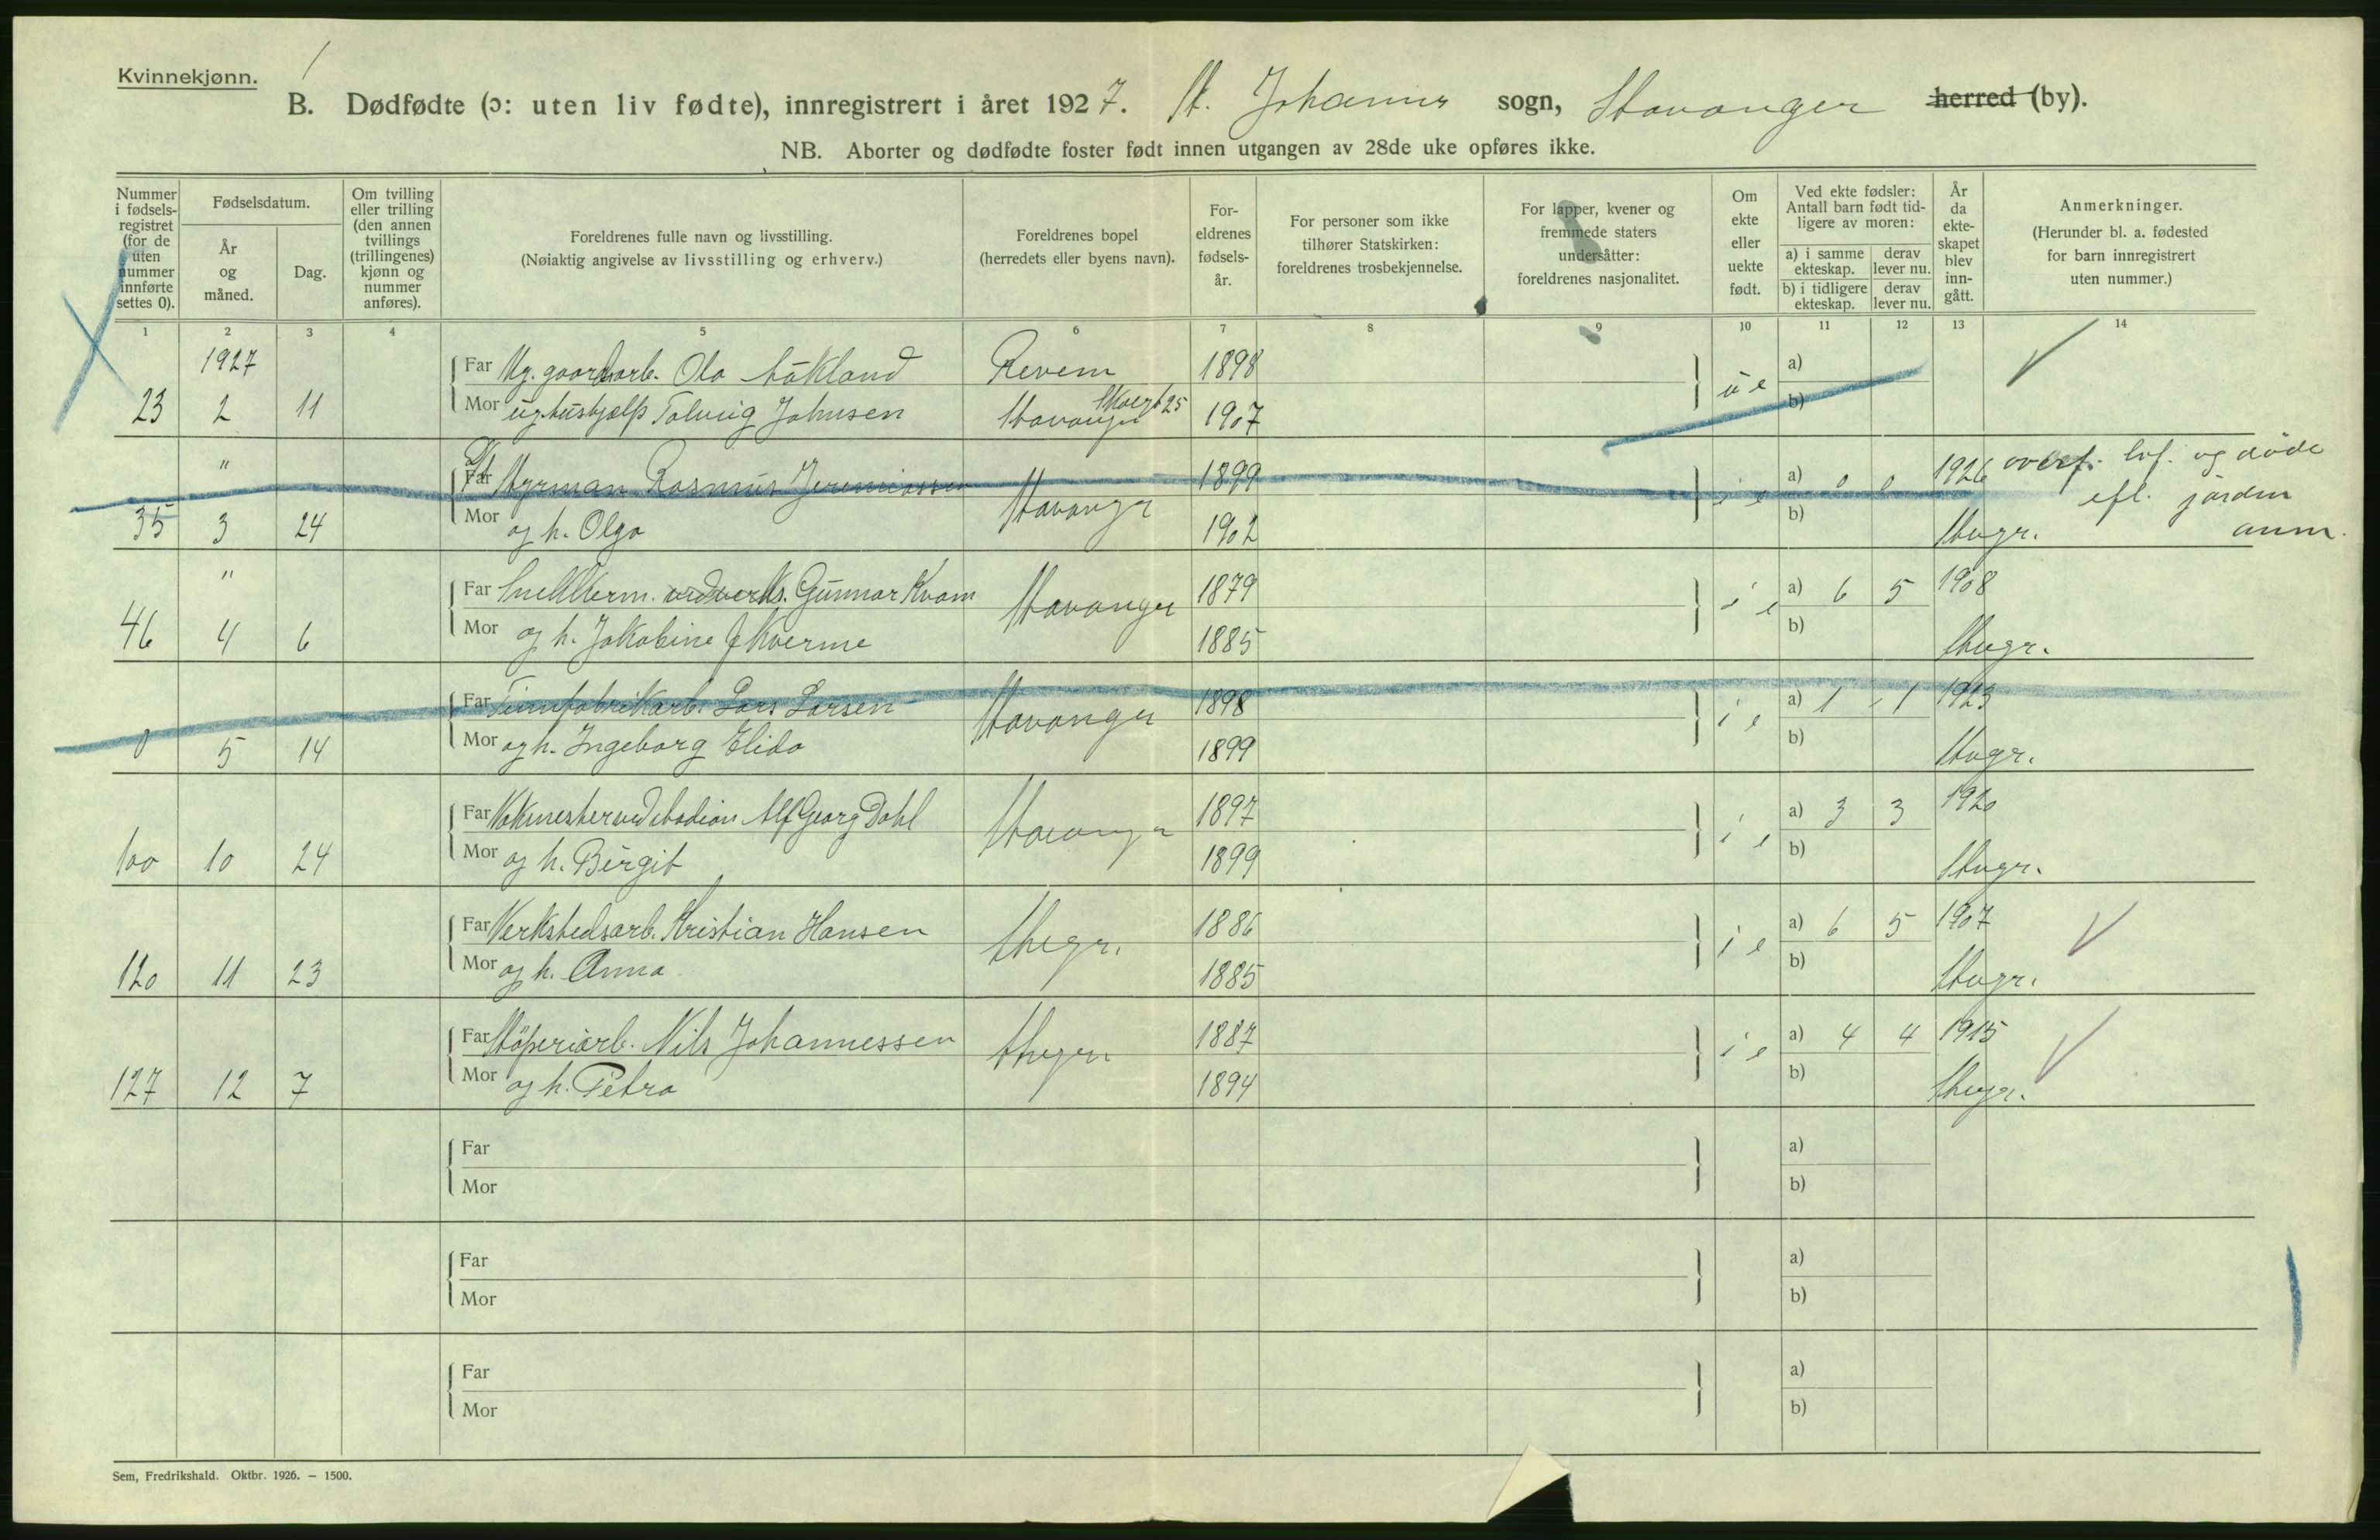 Kvinnekjønn.
B. Dødfødte (ɔ: uten liv fødte), innregistrert i året 1927. St. Johannis sogn, Stavanger herred (by).
NB. Aborter og dødfødte foster født innen utgangen av 28de uke opføres ikke.
Nummer i fødselsregistret (for de uten nummer innførte settes 0).
Fødselsdatum.
År og måned.
Dag.
Om tvilling eller trilling (den annen tvillings (trillingenes) kjønn og nummer anføres).
Foreldrenes fulle navn og livsstilling.
(Nøiaktig angivelse av livsstilling og erhverv.)
Foreldrenes bopel
(herredets eller byens navn).
Foreldrenes fødselsår.
For personer som ikke tilhører Statskirken: foreldrenes trosbekjennelse.
For lapper, kvener og fremmede staters undersåtter: foreldrenes nasjonalitet.
Om ekte eller uekte født.
Ved ekte fødsler: Antall barn født tidligere av moren:
a) i samme ekteskap. derav lever nu.
b) i tidligere ekteskap. derav lever nu.
År da ekteskapet blev inngått.
Anmerkninger.
(Herunder bl. a. fødested for barn innregistrert uten nummer.)
1 2 3 4 5 6 7 8 9 10 11 12 13 14
1927 Far Ug. gaardarb. Ola Lökland Revem 1898 a)
23 2 11 Mor ug. hushjelp Solveig Johnsen Stavanger 1907 ue b)
" Far Styrman Rasmus Jeremiassen Stavanger 1899 a) 0 0 1926 overf. lev. og døde
35 3 24 Mor og h. Olga 1902 i e b) Stvgr. efl. jordm
anm.
" Far Snekkerm. Gunnar Kvam Stavanger 1879 a) 6 5 1908
46 4 6 Mor og h. Jakobine f Kverme 1885 i e b) Stvgr.
Far Tinnfabrikarb. Lars Larsen Stavanger 1898 a) 1 1 1923
0 5 14 Mor og h. Ingeborg Elida 1899 i e b) Stvgr.
Far Vokmester ved stadion Alf Georg Dahl Stavanger 1897 a) 3 3 1920
100 10 24 Mor og h. Birgit 1899 i e b) Stvgr.
Far Verkstedsarb. Kristian Hansen Stvgr. 1886 a) 6 5 1907
120 11 23 Mor og h. Anna 1885 i e b) Stvgr.
Far Støperiarb. Nils Johannessen Stvgr. 1887 a) 4 4 1915
127 12 7 Mor og h. Petra 1894 i e b) Stvgr.
Far a)
Mor b)
Far a)
Mor b)
Far a)
Mor b)
Sem, Fredrikshald. Oktbr. 1926. – 1500.